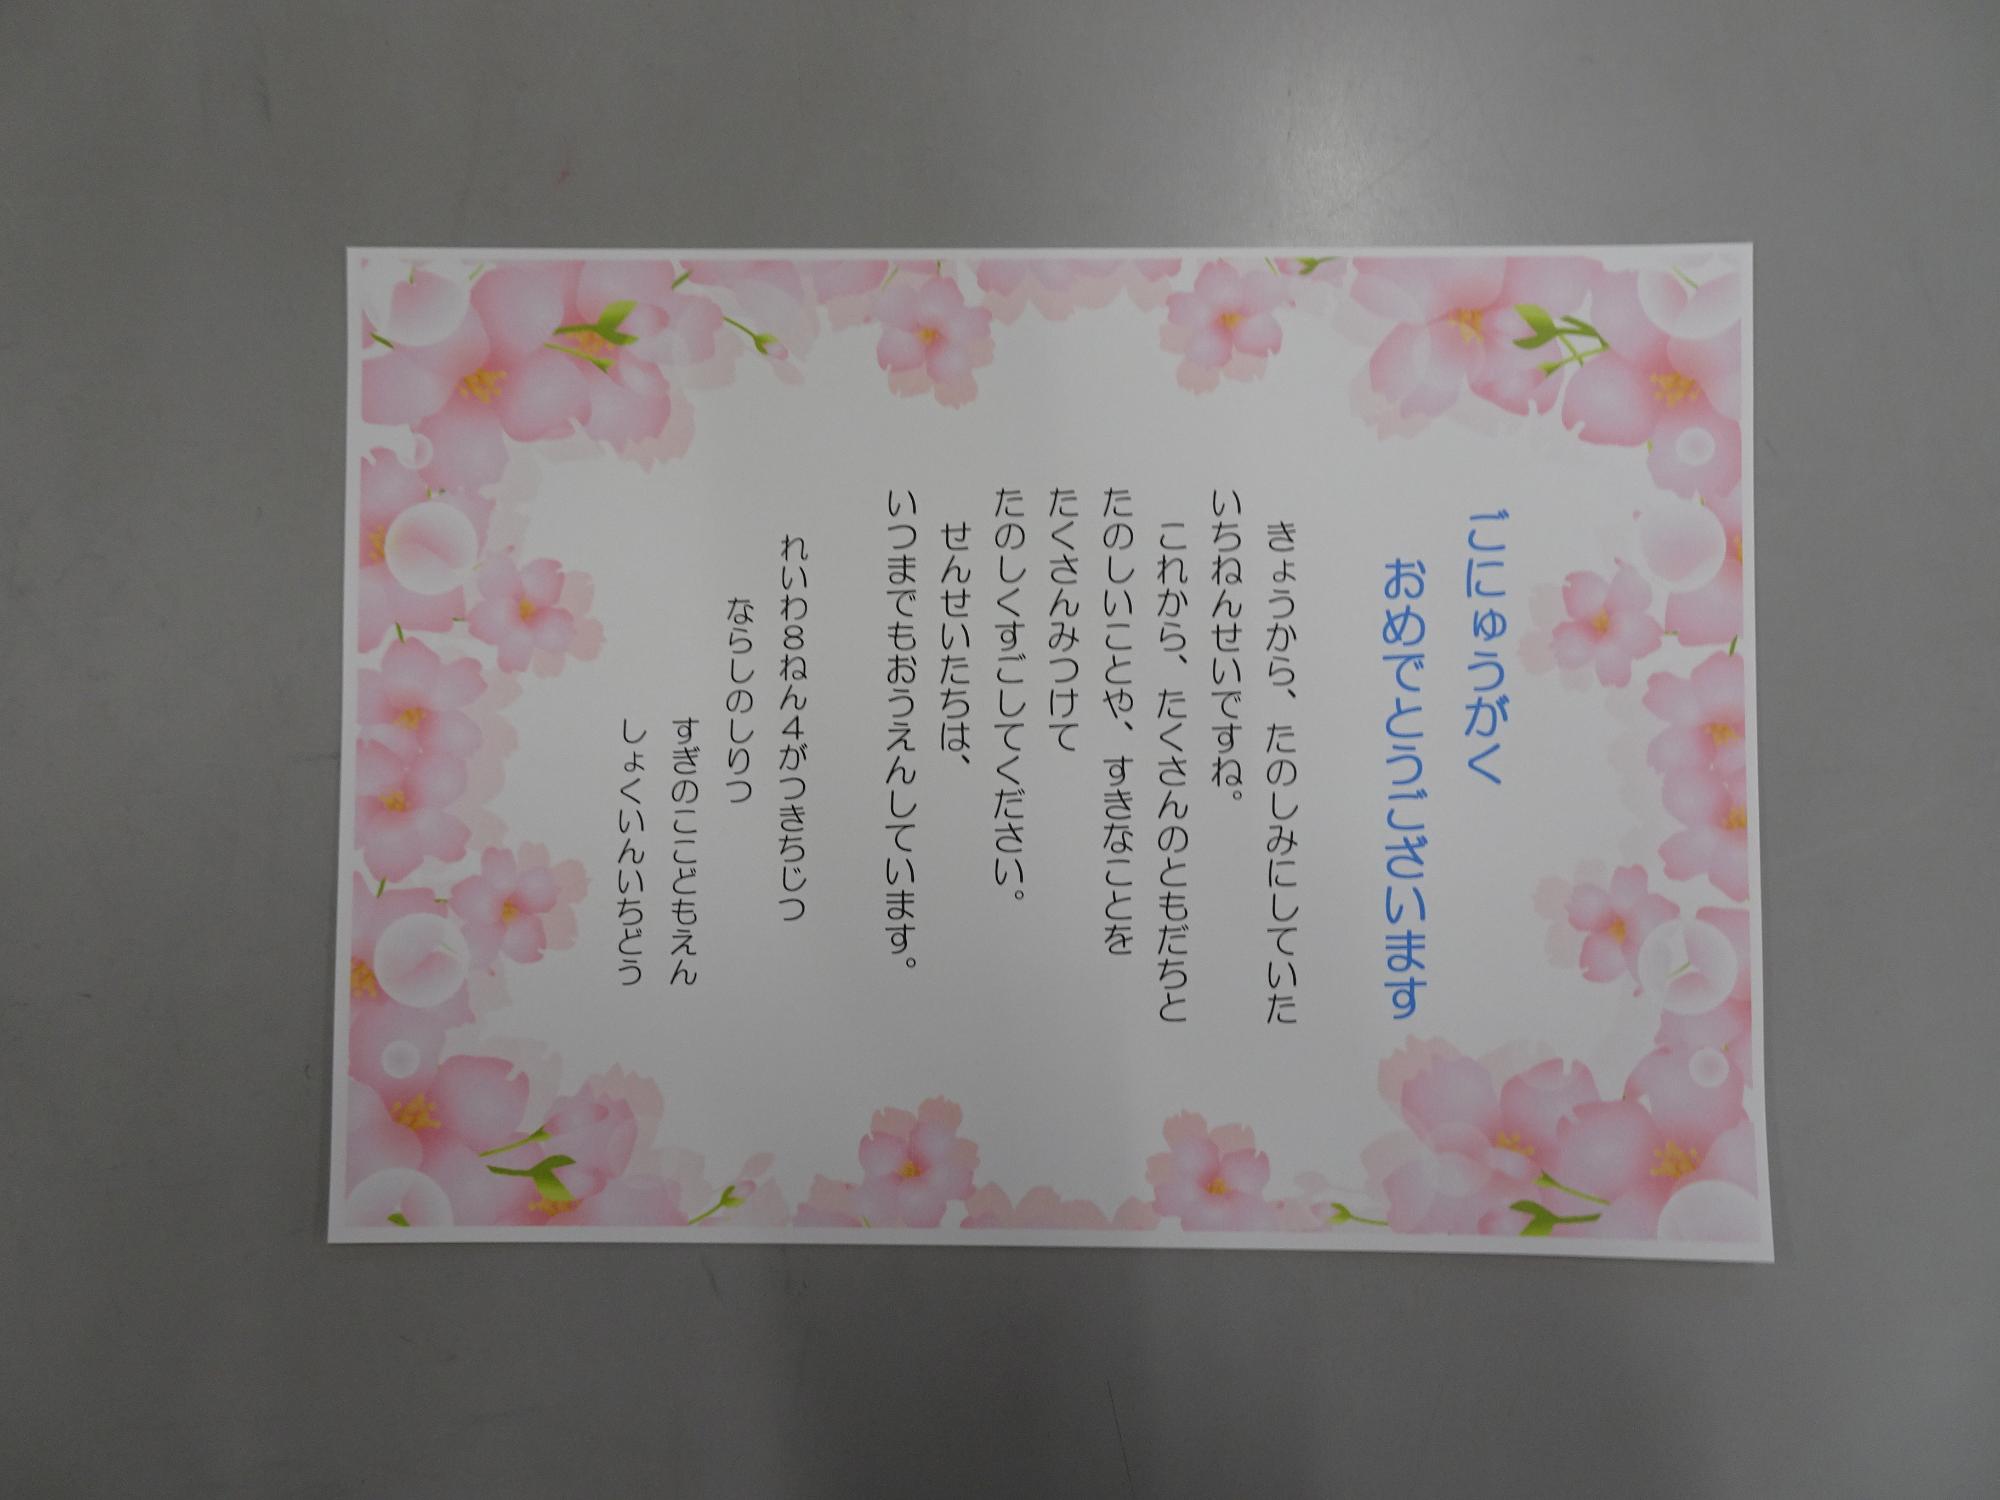 ごにゅうがく
おめでとうございます
きょうから、たのしみにしていた
いちねんせいですね。
これから、たくさんのともだちと
たのしいことや、すきなことを
たくさんみつけて
たのしくすごしてください。
せんせいたちは、
いつまでもおうえんしています。
れいわ8ねん4がつきちじつ
ならしのしりつ
すぎのここどもえん
しょくいんいちどう